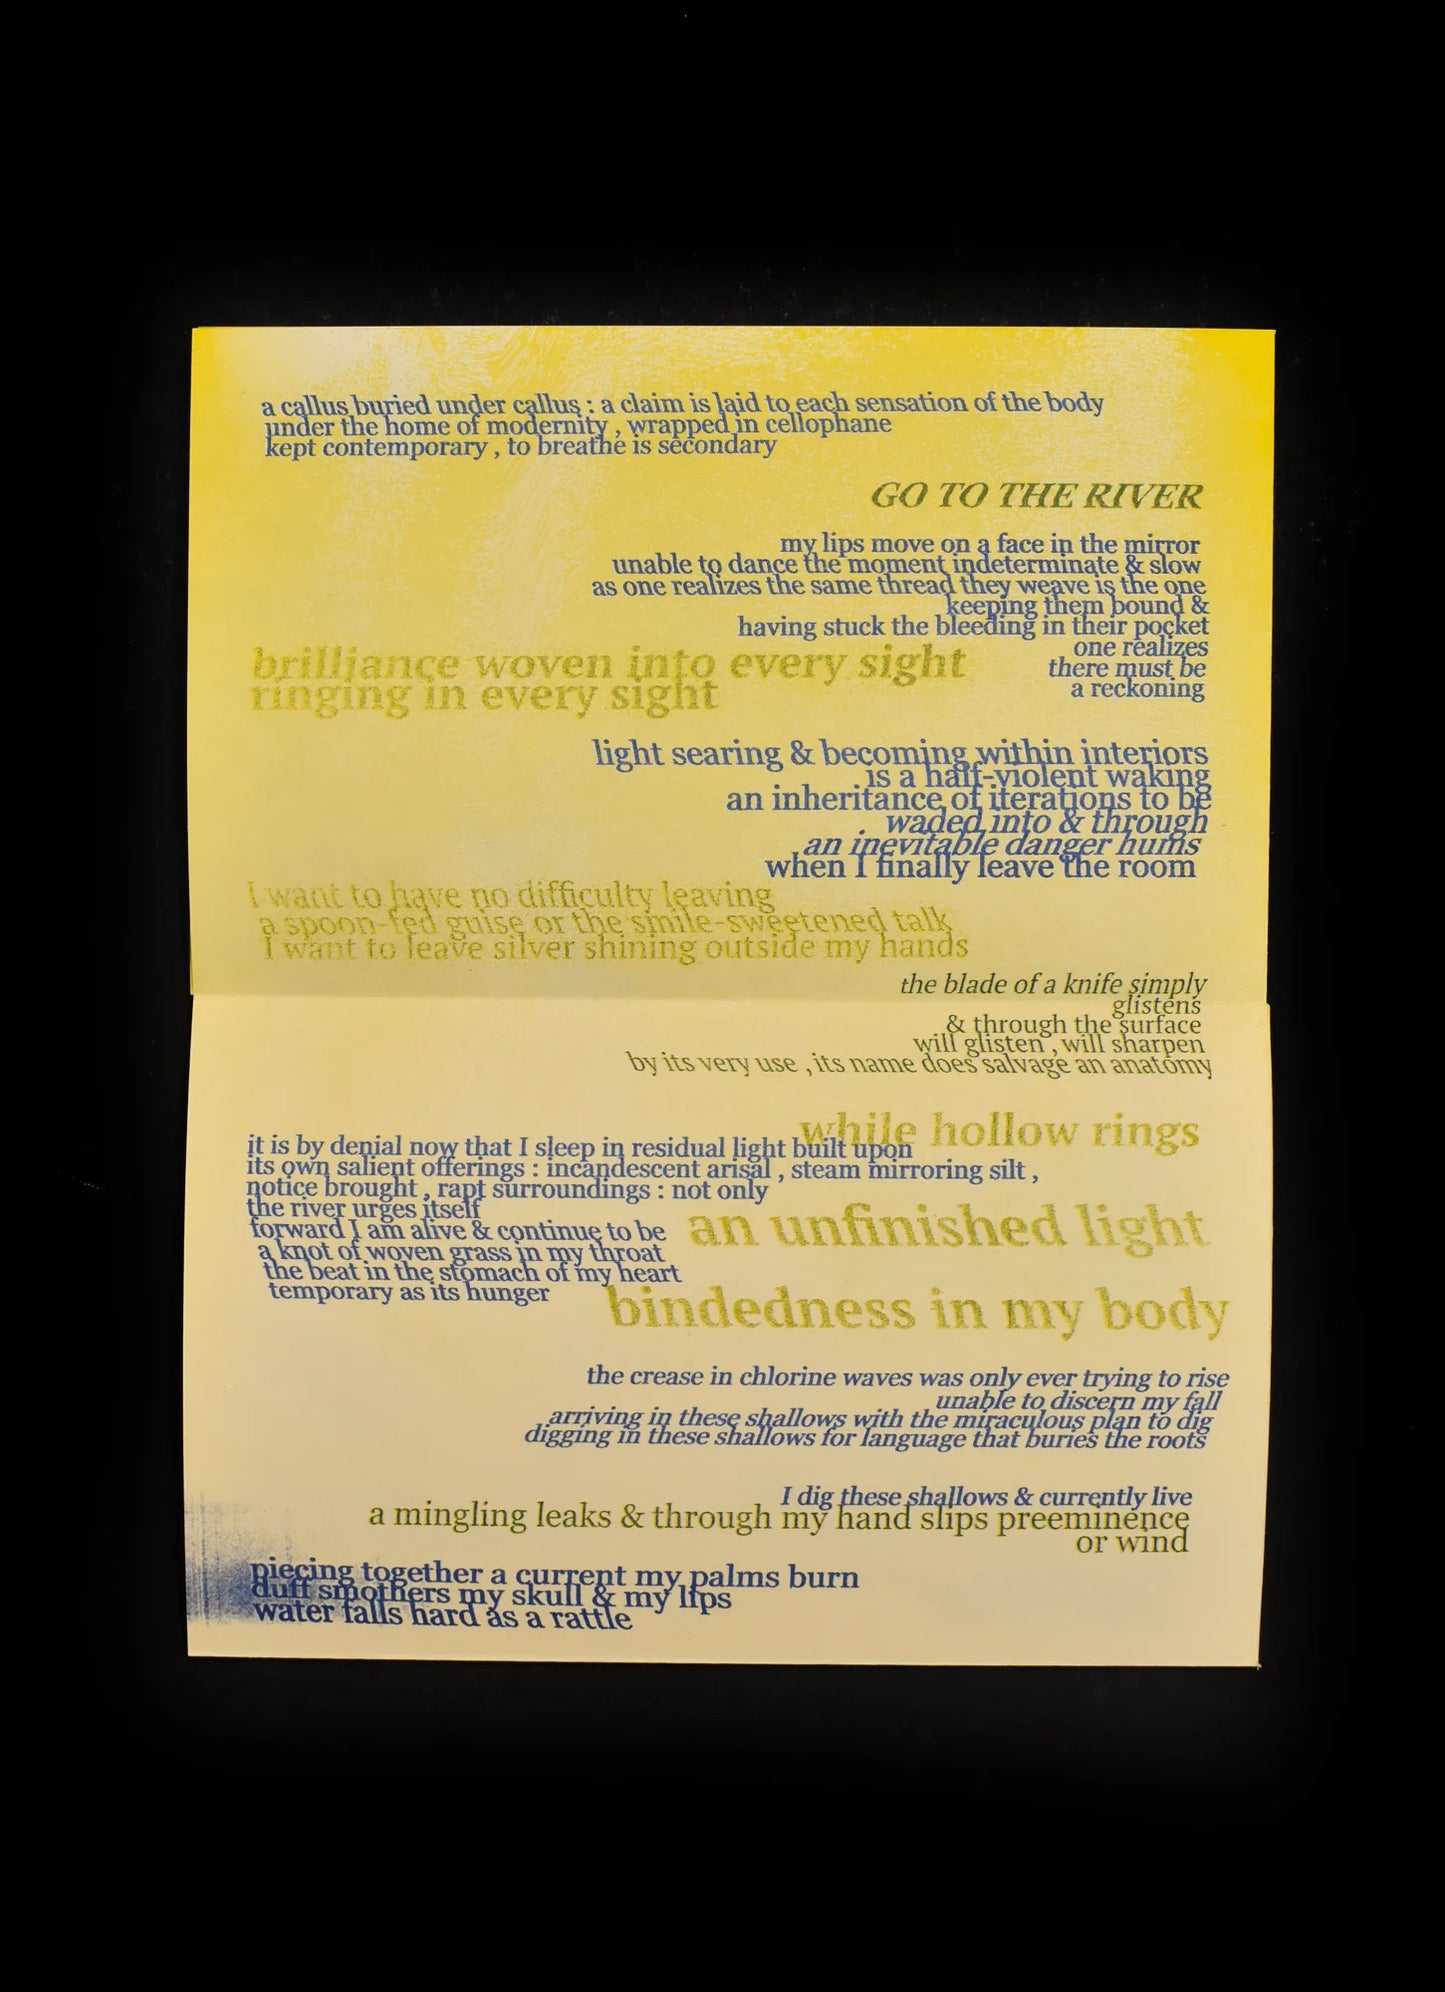 a callus buried under callus : a claim is laid to each sensation of the body
under the home of modernity , wrapped in cellophane
kept contemporary , to breathe is secondary
GO TO THE RIVER
my lips move on a face in the mirror
unable to dance the moment indeterminate & slow
as one realizes the same thread they weave is the one
keeping them bound &
having stuck the bleeding in their pocket
one realizes
there must be
a reckoning
brilliance woven into every sight
ringing in every sight
light searing & becoming within interiors
is a half-violent waking
an inheritance of iterations to be
waded into & through
an inevitable danger hums
when I finally leave the room
I want to have no difficulty leaving
a spoon-fed guise or the smile-sweetened talk
I want to leave silver shining outside my hands
the blade of a knife simply
glistens
& through the surface
will glisten , will sharpen
by its very use , its name does salvage an anatomy
while hollow rings
it is by denial now that I sleep in residual light built upon
its own salient offerings : incandescent arisal , steam mirroring silt ,
notice brought , rapt surroundings : not only
the river urges itself
forward I am alive & continue to be
a knot of woven grass in my throat
the beat in the stomach of my heart
temporary as its hunger
an unfinished light
bindedness in my body
the crease in chlorine waves was only ever trying to rise
unable to discern my fall
arriving in these shallows with the miraculous plan to dig
digging in these shallows for language that buries the roots
I dig these shallows & currently live
a mingling leaks & through my hand slips preeminence
or wind
piecing together a current my palms burn
duff smothers my skull & my lips
water falls hard as a rattle